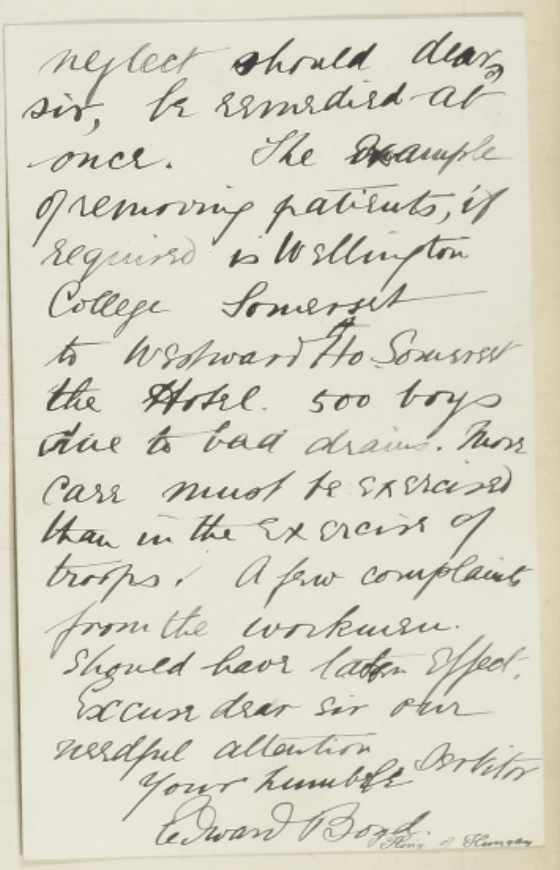 neglect should dear
sir, be remedied at
once. The example
of removing patients, if
required is Wellington
College Somerset
to Westward Ho Somerset
the Hotel. 500 boys
due to bad drains. More
care must be exercised
than in the Exercise of
troops. A few complaints
from the workmen.
should have taken Effect.
Excuse dear sir our
needful attention
Your humble Servitor
Edward Boyd.
King of Hungary